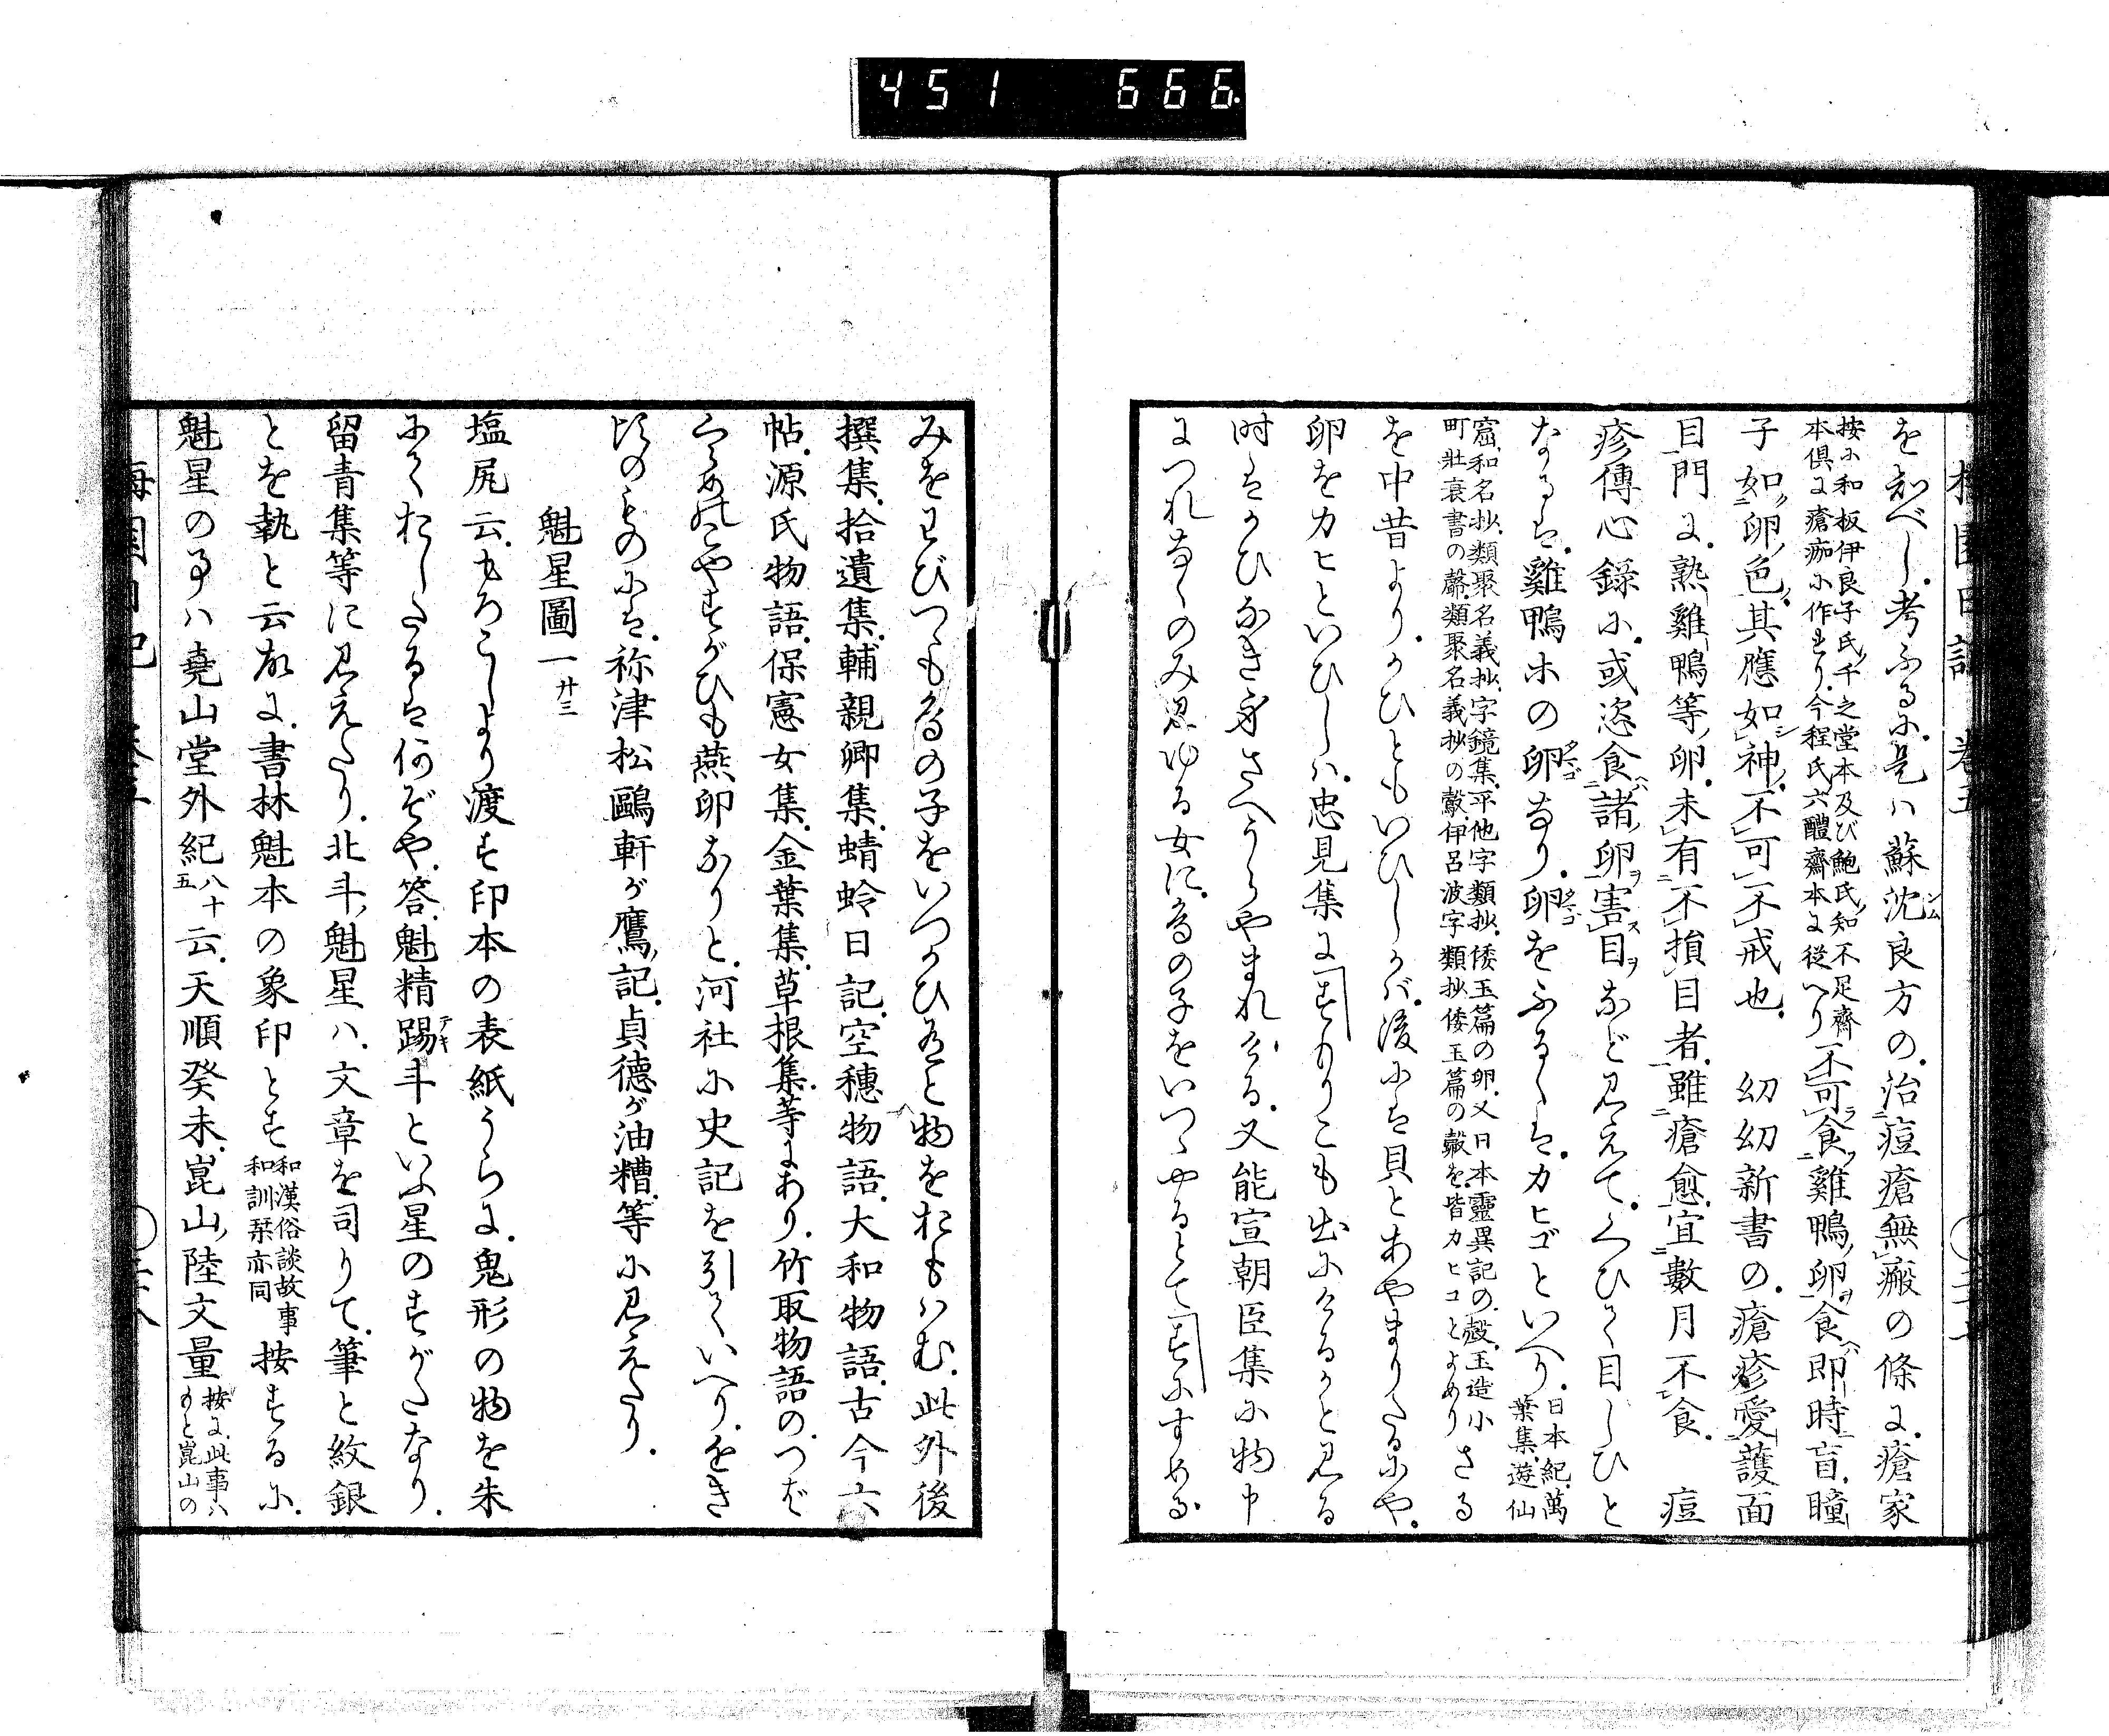 451 666
を知べし。考ふるに。是ハ蘇沈良方の。治痘瘡無瘢の條に。瘡家
按に和板伊良子氏。千之堂本及び鮑氏。知不足齋
本倶に瘡痂に作まり。今程氏六醴齋本に從へり
不可食雞鴨卵。食即時盲。瞳
子如卵色。其應如神。不可不戒也。　幼幼新書の。瘡疹愛護面
目門に。熟雞鴨等卵。未有不損目者。雖瘡愈。宜數月不食。　痘
疹傳心錄に。或恣食諸卵害目など見えて。くひて目しひと
なるは。雞鴨ホの卵なり。卵をふるくは。カヒゴといへり。
日本紀。萬
葉集。遊仙
窟。和名抄。類聚名義抄。字鏡集。平他字類抄。倭玉篇の卵。又日本靈異記の。㲉。玉造小
町壯衰書の。類聚名義抄の㲉。伊呂波字類抄倭玉篇の㲉を。皆カヒコとよめり
さる
を中昔より。かひともいひしかバ。後には貝とあやまりたるにや。
卵をカヒといひしハ。忠見集に「すもりこも出にけるかと見る
時はかひなき身さへうらやまれける。又能宣朝臣集に物申
につれなくのみ見ゆる女に。鳥の子をいつゝやるとて「すにすめる
みをわびつゝも鳥の子をいつかひありと物をおもハむ。此外後
撰集。拾遺集。輔親卿集。蜻蛉日記。空穗物語。大和物語。古今六
帖。源氏物語。保憲女集。金葉集。草根集。等にあり。竹取物語の。つば
くらめのこやすがひも燕卵なりと。河社に史記を引ていへり。ちかき
比のものには。祢津松鷗軒が鷹記。貞德が油糟。等に見えたり。
魁星圖一廿三
塩尻云。もろこしより渡す印本の表紙うらに。鬼形の物を朱
にておしたるは何ぞや。答。魁精踢斗といふ星のすがたなり。
留青集等に見えたり。北斗魁星ハ。文章を司りて。筆と紋銀
とを執と云故に。書林魁本の象印とす
和漢俗談故事
和訓栞亦同
按するに。
魁星の事ハ堯山堂外紀
八十
五
云。天順癸未。崑山陸文量
按に。此事ハ
もと崑山の